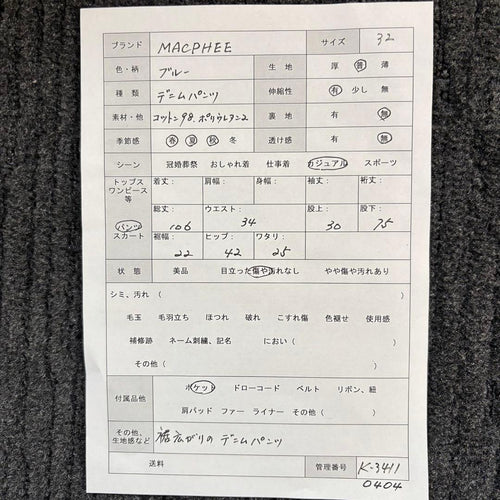 ブランド MACPHEE サイズ 32
色・柄 ブルー 生地 厚 普 薄
種類 デニムパンツ 伸縮性 有 少し 無
素材・他 コットン98.ポリウレタン2 裏地 有 無
季節感 春 夏 秋 冬 透け感 有 無
シーン 冠婚葬祭 おしゃれ着 仕事着 カジュアル スポーツ
トップス ワンピース 等 着丈: 肩幅: 身幅: 袖丈: 裄丈:
パンツ スカート 総丈: 106 ウエスト: 34 股上: 30 股下: 75
裾幅: 22 ヒップ: 42 ワタリ: 25
状態 美品 目立った傷や汚れなし やや傷や汚れあり
シミ、汚れ ( )
毛玉 毛羽立ち ほつれ 破れ こすれ傷 色褪せ 使用感
補修跡 ネーム刺繍、記名 におい ( )
その他 ( )
付属品他 ポケット ドローコード ベルト リボン、紐
肩パッド ファー ライナー その他 ( )
その他、生地感など 裾広がりの デニムパンツ
送料 管理番号 K-3411
0404